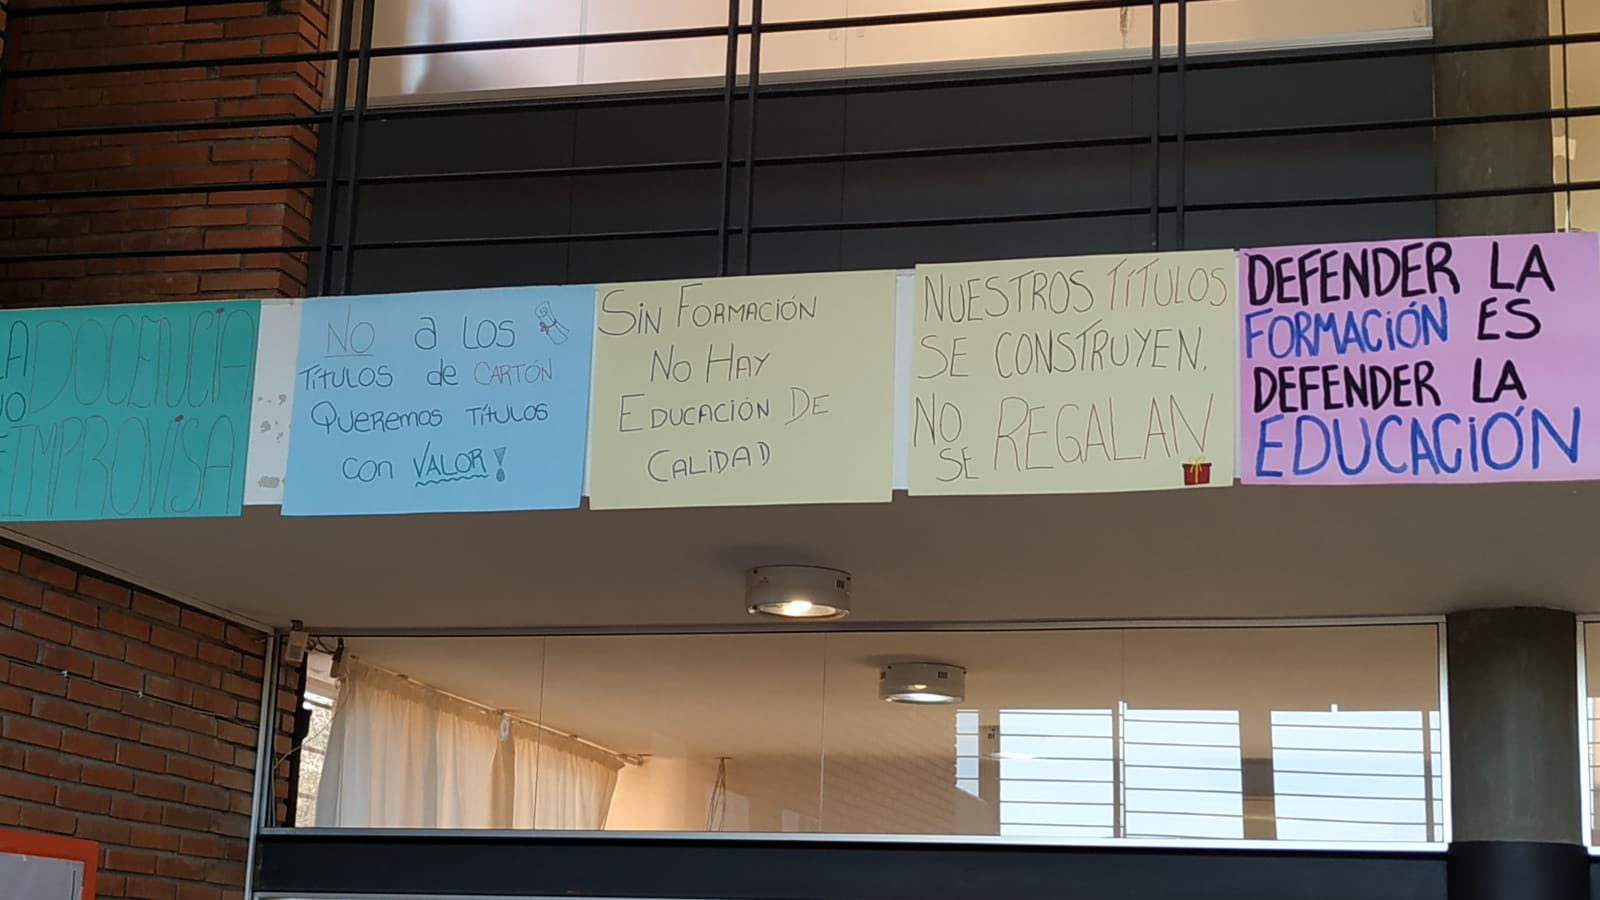 LA DOCENCIA
NO
SE IMPROVISA
NO a LOS
TÍTULOS de CARTÓN
QUEREMOS TÍTULOS
CON VALOR!
SIN FORMACIÓN
NO HAY
EDUCACIÓN DE
CALIDAD
NUESTROS TÍTULOS
SE CONSTRUYEN.
NO
SE REGALAN
DEFENDER LA
FORMACIÓN ES
DEFENDER LA
EDUCACIÓN